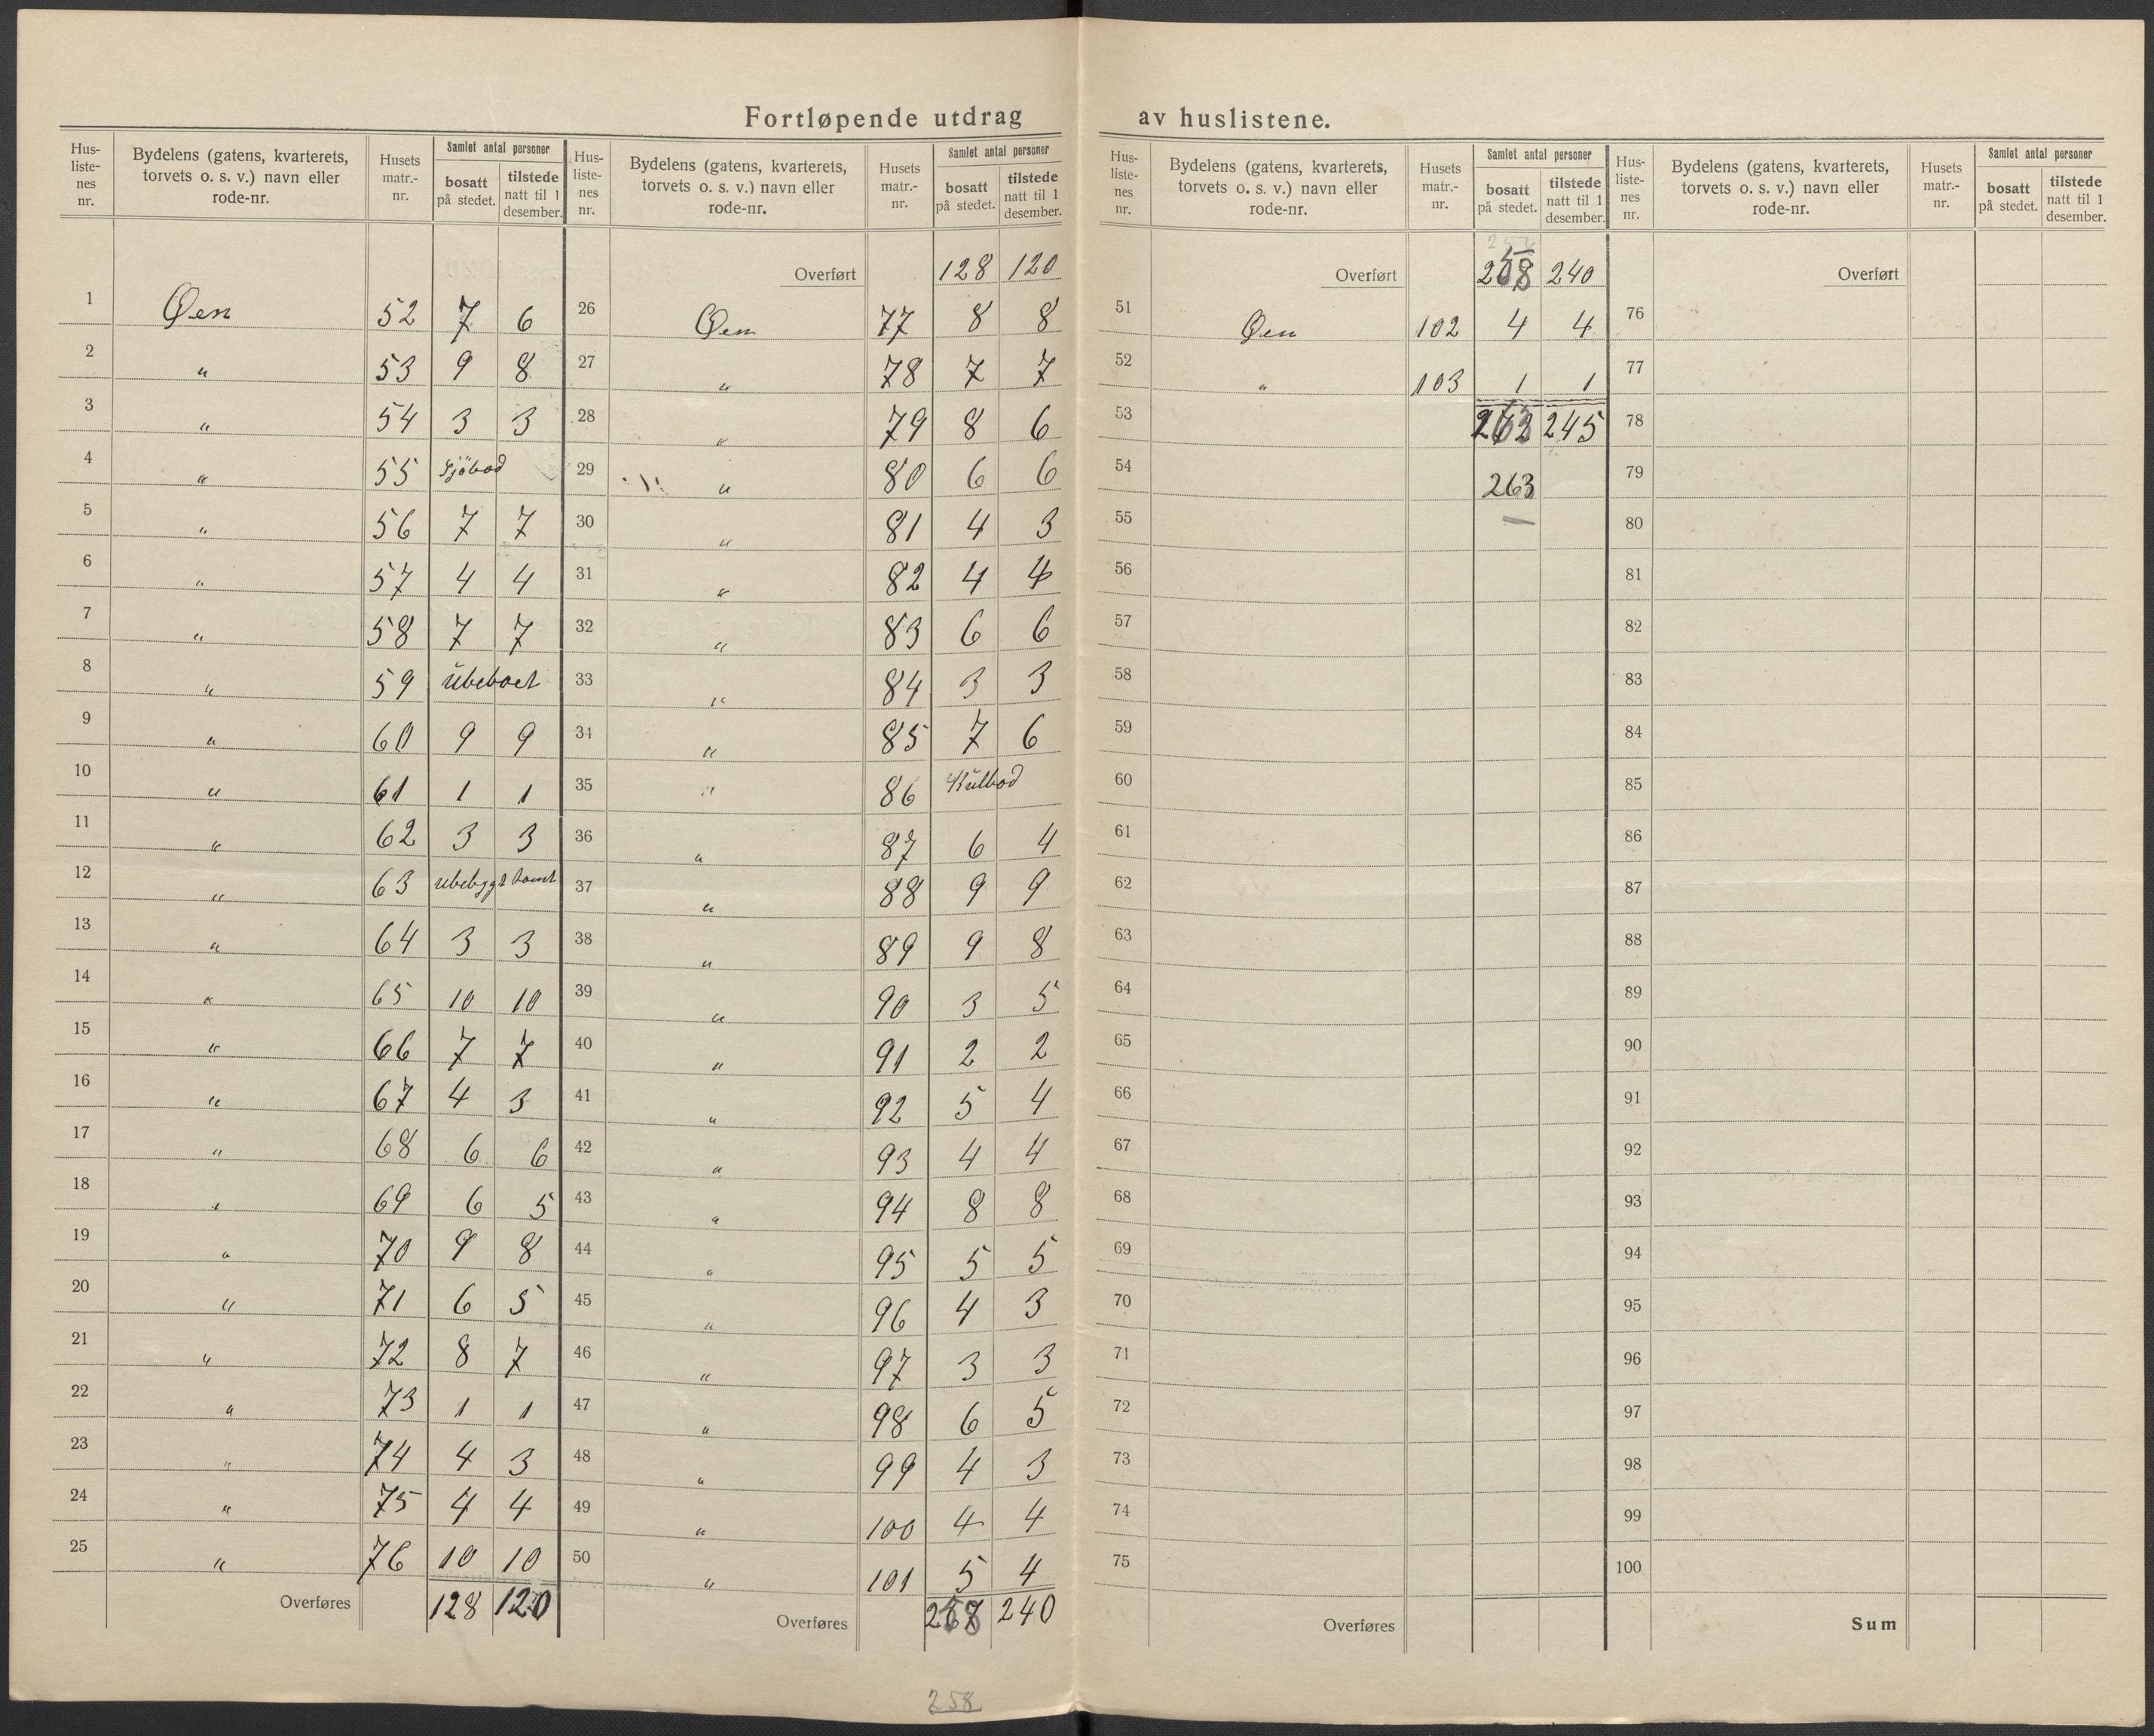 Fortløpende utdrag av huslistene.
Hus-liste-nes nr. | Bydelens (gatens, kvarterets, torvets o. s. v.) navn eller rode-nr. | Husets matr.-nr. | Samlet antal personer bosatt på stedet. | tilstede natt til 1 desember.
1 Øen 52 7 6
2 " 53 9 8
3 " 54 3 3
4 " 55 Sjöbod
5 " 56 7 7
6 " 57 4 4
7 " 58 7 7
8 " 59 ubeboet
9 " 60 9 9
10 " 61 1 1
11 " 62 3 3
12 " 63 ubebygt tomt
13 " 64 3 3
14 " 65 10 10
15 " 66 7 7
16 " 67 4 3
17 " 68 6 6
18 " 69 6 5
19 " 70 9 8
20 " 71 6 5
21 " 72 8 7
22 " 73 1 1
23 " 74 4 3
24 " 75 4 4
25 " 76 10 10
Overføres 128 120
Hus-liste-nes nr. | Bydelens (gatens, kvarterets, torvets o. s. v.) navn eller rode-nr. | Husets matr.-nr. | Samlet antal personer bosatt på stedet. | tilstede natt til 1 desember.
Overført 128 120
26 Øen 77 8 8
27 " 78 7 7
28 " 79 8 6
29 " 80 6 6
30 " 81 4 3
31 " 82 4 4
32 " 83 6 6
33 " 84 3 3
34 " 85 7 6
35 " 86 Kulbod
36 " 87 6 4
37 " 88 9 9
38 " 89 9 8
39 " 90 3 5
40 " 91 2 2
41 " 92 5 4
42 " 93 4 4
43 " 94 8 8
44 " 95 5 5
45 " 96 4 3
46 " 97 3 3
47 " 98 6 5
48 " 99 4 3
49 " 100 4 4
50 " 101 5 4
Overføres 240
258
Hus-liste-nes nr. | Bydelens (gatens, kvarterets, torvets o. s. v.) navn eller rode-nr. | Husets matr.-nr. | Samlet antal personer bosatt på stedet. | tilstede natt til 1 desember.
Overført 258 240
51 Øen 102 4 4
52 " 103 1 1
53 245
54 263
55
56
57
58
59
60
61
62
63
64
65
66
67
68
69
70
71
72
73
74
75
Overføres
Hus-liste-nes nr. | Bydelens (gatens, kvarterets, torvets o. s. v.) navn eller rode-nr. | Husets matr.-nr. | Samlet antal personer bosatt på stedet. | tilstede natt til 1 desember.
Overført
76
77
78
79
80
81
82
83
84
85
86
87
88
89
90
91
92
93
94
95
96
97
98
99
100
Sum